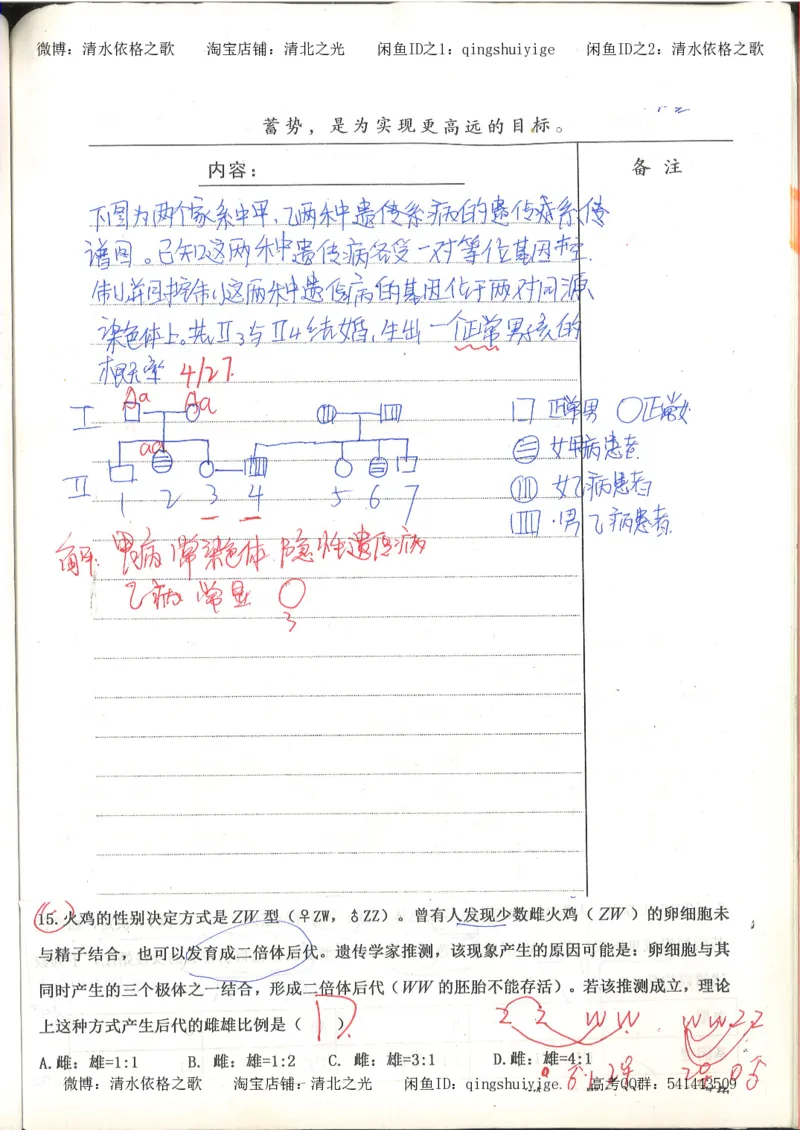 微博：清水依格之歌 淘宝店铺：清北之光 闲鱼ID之1：qingshuiyige 闲鱼ID之2：清水依格之歌
蓄势，是为实现更高远的目标。
内容： 备 注
下图为两个家系中甲、乙两种遗传系病的遗传病系传
谱图。已知这两种遗传病各受一对等位基因控
制并且控制这两种遗传病的基因位于两对同源
染色体上。若Ⅱ3与Ⅱ4结婚，生出一个正常男孩的
概率 4/27.
Aa Aa
Ⅰ □正常男 ○正常女
aa 女甲病患者
Ⅱ 女乙病患者
1 2 3 4 5 6 7 男乙病患者
解：甲病 常染色体 隐性遗传病
乙病 常显
3
15.火鸡的性别决定方式是ZW型（♀ZW，♂ZZ）。曾有人发现少数雌火鸡（ZW）的卵细胞未
与精子结合，也可以发育成二倍体后代。遗传学家推测，该现象产生的原因可能是：卵细胞与其
同时产生的三个极体之一结合，形成二倍体后代（WW的胚胎不能存活）。若该推测成立，理论
上这种方式产生后代的雌雄比例是（ D ）
Z Z W W W W Z Z
A.雌：雄=1:1 B. 雌：雄=1:2 C. 雌：雄=3:1 D.雌：雄=4:1
微博：清水依格之歌 淘宝店铺：清北之光 闲鱼ID：qingshuiyige 高考QQ群：541443509